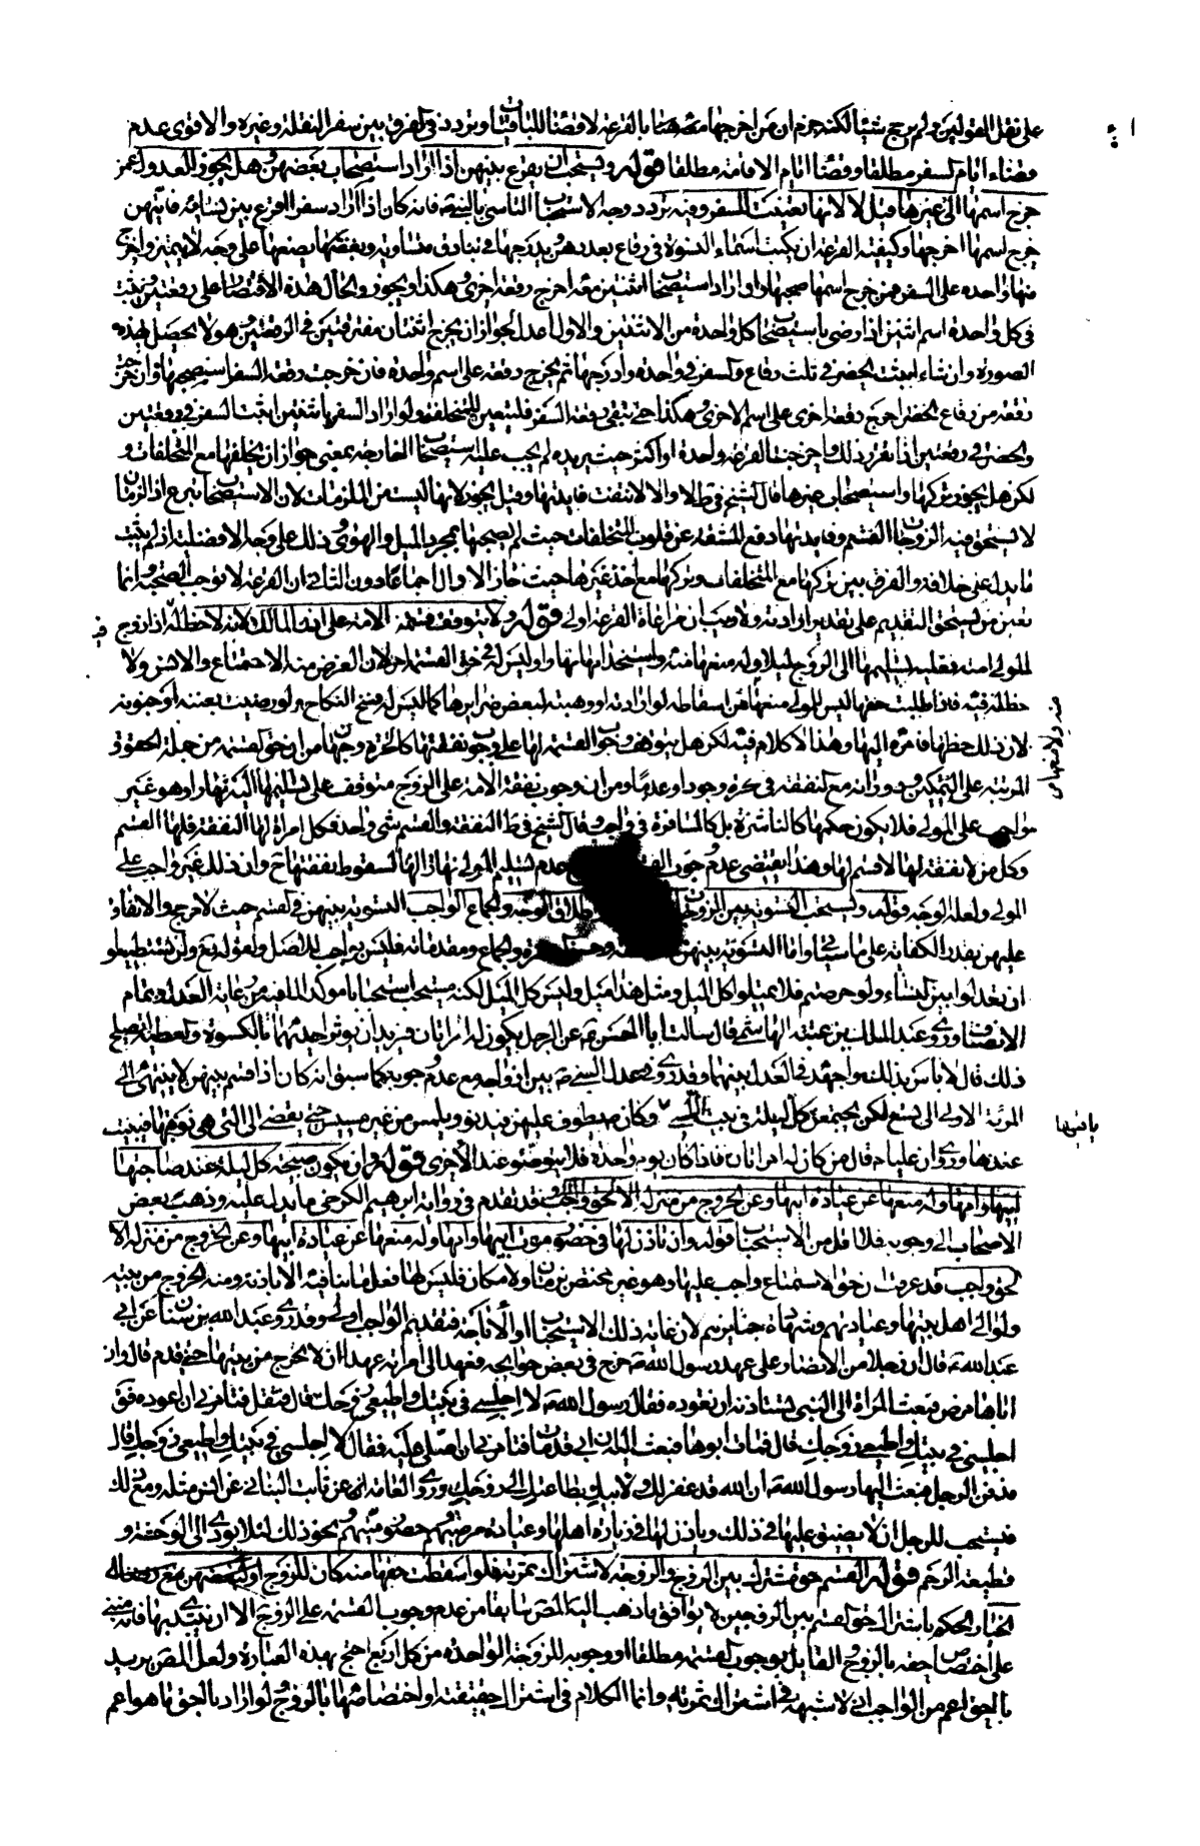 على نقل القولين ولم يرجح شيئا لكنه جزم ان من اخرجها معه هنا بالقرعة لا قضا للباقيات وتردد في الفرق بين سفر النقلة وغيره والاقوى عدم
قضاء ايام السفر مطلقا وقضاء ايام الاقامة مطلقا قوله ويستحب ان يقرع بينهن اذا اراد استصحاب بعضهن وهل يجوز العدول عمن
خرج اسمها الى غيرها قيل لا لانها تعينت للسفر وفيه تردد وجه الاستحباب التاسي بالنبي ص فانه كان اذا اراد سفرا اقرع بين نسائه فايتهن
خرج اسمها اخرجها وكيفية القرعة ان يكتب اسماء النسوة في رقاع بعددهن يدرجها في بنادق متساوية ويضعها على وجه لا يتميز ويخرج
منها واحدة على السفر فمن خرج اسمها صحبها وان اراد استصحاب اثنتين معه اخرج رقعة اخرى وهكذا ويجوز والحال هذه الاقتصار على رقعتين يثبت
في كل واحدة اسم اثنتين اذا رضي باستصحاب كل واحدة من الاثنتين والاول اعدل لجواز ان يخرج اثنتان مفترقتين في الرقعتين وهو لا يحصل بهذه
الصورة وان شاء اثبت الحضر في ثلث رقاع والسفر في واحدة وادرجها ثم يخرج رقعة على اسم واحدة فان خرجت رقعة السفر استصحبها وان خرجت
رقعة من رقاع الحضر اخرج رقعة اخرى على اسم الاخرى وهكذا حتى تبقى رقعة السفر فليتعين للمتخلفة ولو اراد السفر باثنتين اثبت السفر في رقعتين
والحضر في رقعتين اذا تقرر ذلك واخرجت القرعة واحدة او اكثر حيث يريده لم يجب عليه استصحاب الخارجة بمعنى جواز ان يخلفها مع المتخلفات و
لكن هل يجوز تركها واستصحاب غيرها قال الشيخ في ط لا والا لانتفت فايدتها وقيل يجوز لانها ليست من الملزمات لان الاستصحاب تبرع اذ الزمان
لا يستحق فيه الزوجات القسم وفايدتها دفع المشقة عن قلوب المتخلفات حيث لم يصحبها بمجرد الميل والهوى وذلك على وجه الافضلية اذ لم يثبت
ما يدل على خلافه والفرق بين تركها مع المتخلفات وتركها مع اخذ غيرها حيث جاز الاول اجماعا دون الثاني ان القرعة لا توجب الصحبة وانما
تعين من يستحق التقديم على تقدير ارادته ولا ريب ان مراعاة القرعة اولى قوله ولا يتوقف قسمة الامة على اذن المالك لانه لا حظ له اذا زوج
المولى امته فعليه تسليمها الى الزوج ليلا وله منعها منه ويستخدامها نهارا وليس له في حق القسمة حق لان الغرض منه الاجتماع والانس ولا
حظ له فيه فاذا طلبت حقها ليس للمولى منعها من اسقاطه لو ارادته او وهبته لبعض ضرايرها كما ليس له فسخ النكاح لو رضيت بعننه او جنونه
لان ذلك حظها فامره اليها وهذا لا كلام فيه لكن هل يتوقف وجوب القسمة لها على وجوب نفقتها كالحرة وجهان من ان حق القسمة من جملة الحقوق
المرتبة على التمكين ودورانه مع النفقة في الحرة وجودا وعدما ومن ان وجوب نفقة الامة على الزوج متوقف على تسليمها اليه نهارا وهو غير
واجب على المولى فلا يكون حكمها كالناشزة بل كالمسافرة في واجب قال الشيخ في ط النفقة والقسم شيء واحد فكل امراة لها النفقة فلها القسم
وكل من لا نفقة لها لا قسم لها وهذا يقتضي عدم وجوب القسم عدم تسليم المولى نهارا لها لسقوط نفقتها ح وان ذلك غير واجب على
المولى ولعله اوجه قوله ويستحب التسوية بين الزوجات وطلاق الوجه والجماع الواجب التسوية بينهن في القسم حيث لا مرجح والانفاق
عليهن بقدر الكفاية على ما سياتي واما التسوية بينهن والجماع ومقدماته فليس بواجب للاصل ولقوله تع ولن تستطيعوا
ان تعدلوا بين النساء ولو حرصتم فلا تميلوا كل الميل ومثل هذا الميل وليس كل الميل لكنه مستحب استحبابا موكدا لما فيه من رعاية العدل وتمام
الانصاف وروى عبد الملك بن عتبة الهاشمي قال سالت ابا الحسن ع عن الرجل يكون له امراتان فيريد ان يوثر احديهما بالكسوة والعطية ايصلح
ذلك قال لا باس بذلك واجهد في العدل بينهما وقد روى فعل النبي ص بين ازواجه مع عدم وجوبه كما سبق انه كان اذا قسم بينهن لا ينتهي الى
المرة الاولى الى تسع لكن يجتمعن كل ليلة في بيت التي وكان ص يطوف عليهن يدنو ويلمس من غير مسيس حتى يفضي الى التي هي نوبتها فيبيت
عندها وروى ان عليا ع قال من كان له امراتان فاذا كان يوم واحدة فلا يتوضؤ عند الاخرى قوله وان يكون صبيحة كل ليلة عند صاحبتها
ابيها وامها وله منعها عن عيادة ابيها وعن الخروج من منزله الا لحق واجب قد تقدم في رواية ابرهيم الكرخي ما يدل عليه وذهب بعض
الاصحاب الى وجوبه فلا اقل من الاستحباب قوله وان تاذن لها في حضور موت ابيها وامها وله منعها عن عيادة ابيها وعن الخروج من منزله الا
لحق واجب قد عرفت ان حق الاستمتاع واجب عليها وهو غير مختص بزمان ولا مكان فليس لها فعل ما ينافيه الا باذنه ومنه الخروج من بيته
ولو الى اهل بيتها وعيادتهم وشهادة جنايزهم لان غاية ذلك الاستحباب او الاباحة فتقديم الواجب اولى وقد روى عبد الله بن سنان عن ابي
عبد الله ع قال ان رجلا من الانصار على عهد رسول الله ص خرج في بعض حوايجه فعهد الى امراته عهدا ان لا تخرج من بيتها حتى يقدم قال وان
اباها مرض فبعثت المراة الى النبي تستاذنه ان تعوده فقال رسول الله ص لا اجلسي في بيتك واطيعي زوجك قال فثقل فتامرني ان اعوده فق
اجلسي في بيتك واطيعي زوجك قال فمات ابوها فبعثت اليه ان ابي قد مات فتامرني ان اصلي عليه فقال لا اجلسي في بيتك واطيعي زوجك قال
فدفن الرجل فبعث اليها رسول الله ص ان الله قد غفر لك ولابيك بطاعتك لزوجك وروى العامة عن ثابت البناني عن انس مثله ومع ذلك
فيستحب للرجل ان لا يضيق عليها في ذلك وياذن لها في زيارة اهلها وعيادة مرضهم وحضور ميتهم ونحو ذلك لئلا يؤدي الى الوحشة و
قطيعة الرحم قوله القسم حق مشترك بين الزوج والزوجة لاشتراك ثمرته فلو اسقطت حقها منه كان للزوج
الخيار الحكم باشتراك حق القسم بين الزوجين لا يوافق ما ذهب اليه المص سابقا من عدم وجوب القسمة على الزوج الا ان يبتدي بها فانه مبني
على اختصاص حقه بالزوج والقايل بوجوب القسمة مطلقا او وجوبه للزوجة الواحدة من كل اربع احتج بهذه العبارة ولعل المص يريد
بالحق اعم من الواجب اذ لا شبهة في اشتراك ثمرته وانما الكلام في اشتراك حقيقته او اختصاصها بالزوج لو اراد بالحق ما هو اعم